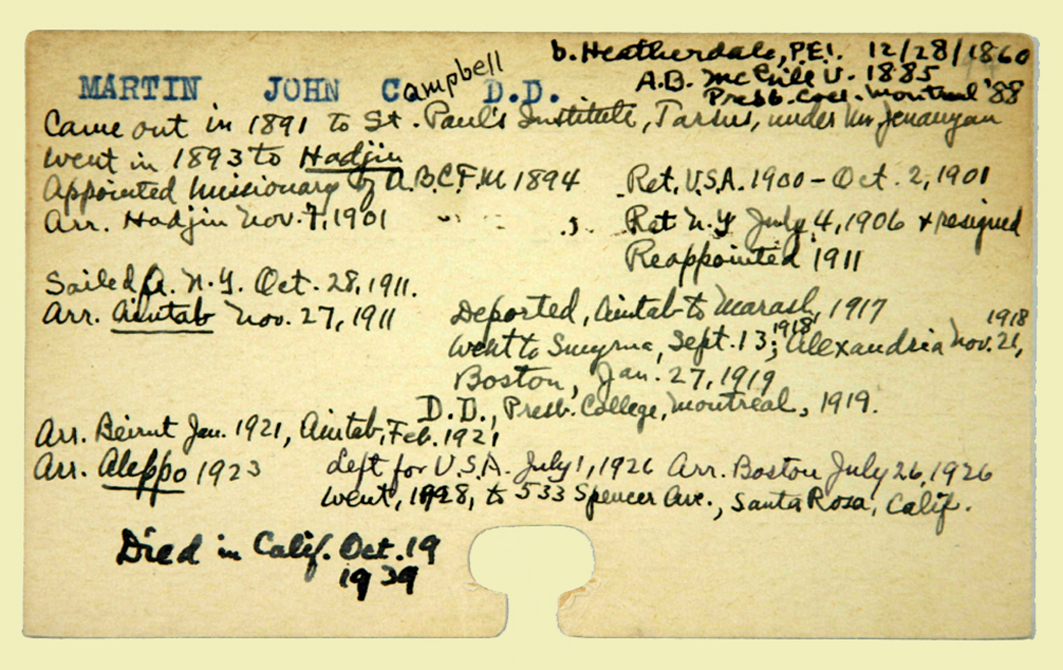 b. Heatherdale, P.E.I. 12/28/1860
A.B. McGill U. 1885
Presb. Coll. Montreal '88
MARTIN JOHN Campbell D.D.
Came out in 1891 to St. Paul's Institute, Tarsus, under Mr Jenanyan
Went in 1893 to Hadjin
Appointed Missionary by A.B.C.F.M 1894 Ret. U.S.A. 1900 - Oct. 2, 1901
Arr. Hadjin Nov. 7, 1901 " " " Ret N.Y July 4, 1906 + resigned
Reappointed 1911
Sailed fr. N.Y. Oct. 28, 1911.
Arr. Aintab Nov. 27, 1911 Deported, Aintab to Marash, 1917
Went to Smyrna, Sept. 13, 1918; Alexandria Nov. 21, 1918
Boston, Jan. 27, 1919
D.D., Presb. College, Montreal, 1919.
Arr. Beirut Jan. 1921, Aintab, Feb. 1921
Arr. Aleppo 1923 Left for U.S.A. July 1, 1926 Arr. Boston July 26, 1926
Went, 1928, to 533 Spencer Ave., Santa Rosa, Calif.
Died in Calif. Oct. 19
1939